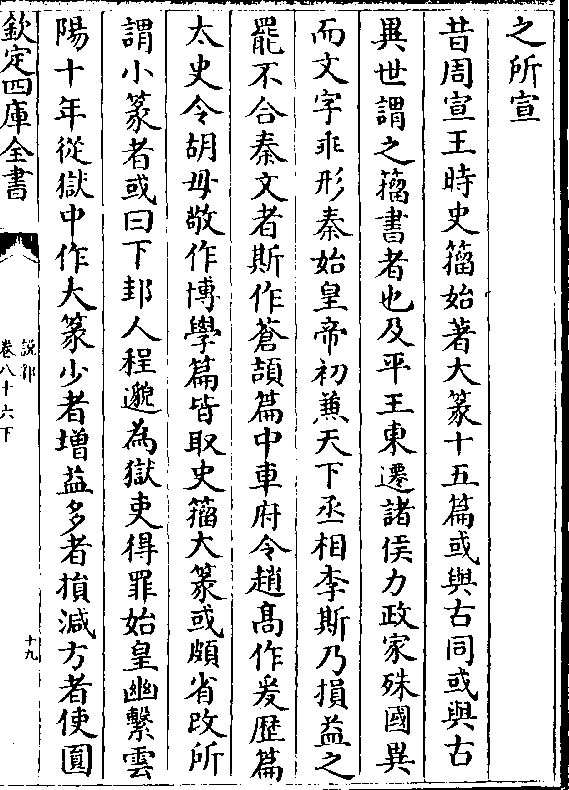 之所宣
昔周宣王時史籀始著大篆十五篇或與古同或與古
異世謂之籀書者也及平王東遷諸侯力政家殊國異
而文字乖形秦始皇帝初兼天下丞相李斯乃損益之
罷不合秦文者斯作蒼頡篇中車府令趙髙作爰歴篇
太史令胡毋敬作博學篇皆取史籀大篆或頗省改所
謂小篆者或曰下邽人程邈為獄吏得罪始皇幽繫雲
陽十年從獄中作大篆少者増益多者損減方者使圓
欽定四庫全書
說郛
卷八十六下
十九